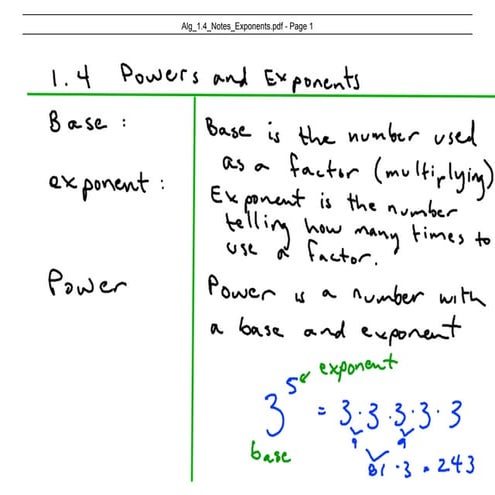 Alg_1.4_Notes_Exponents.pdf - Page 1
1.4 Powers and Exponents
Base :
Base is the number used
as a factor (multiplying)
exponent :
Exponent is the number
telling how many times to
use a factor.
Power
Power is a number with
a base and exponent
exponent
3⁵ = 3·3·3·3·3
base
9 9
81 · 3 = 243